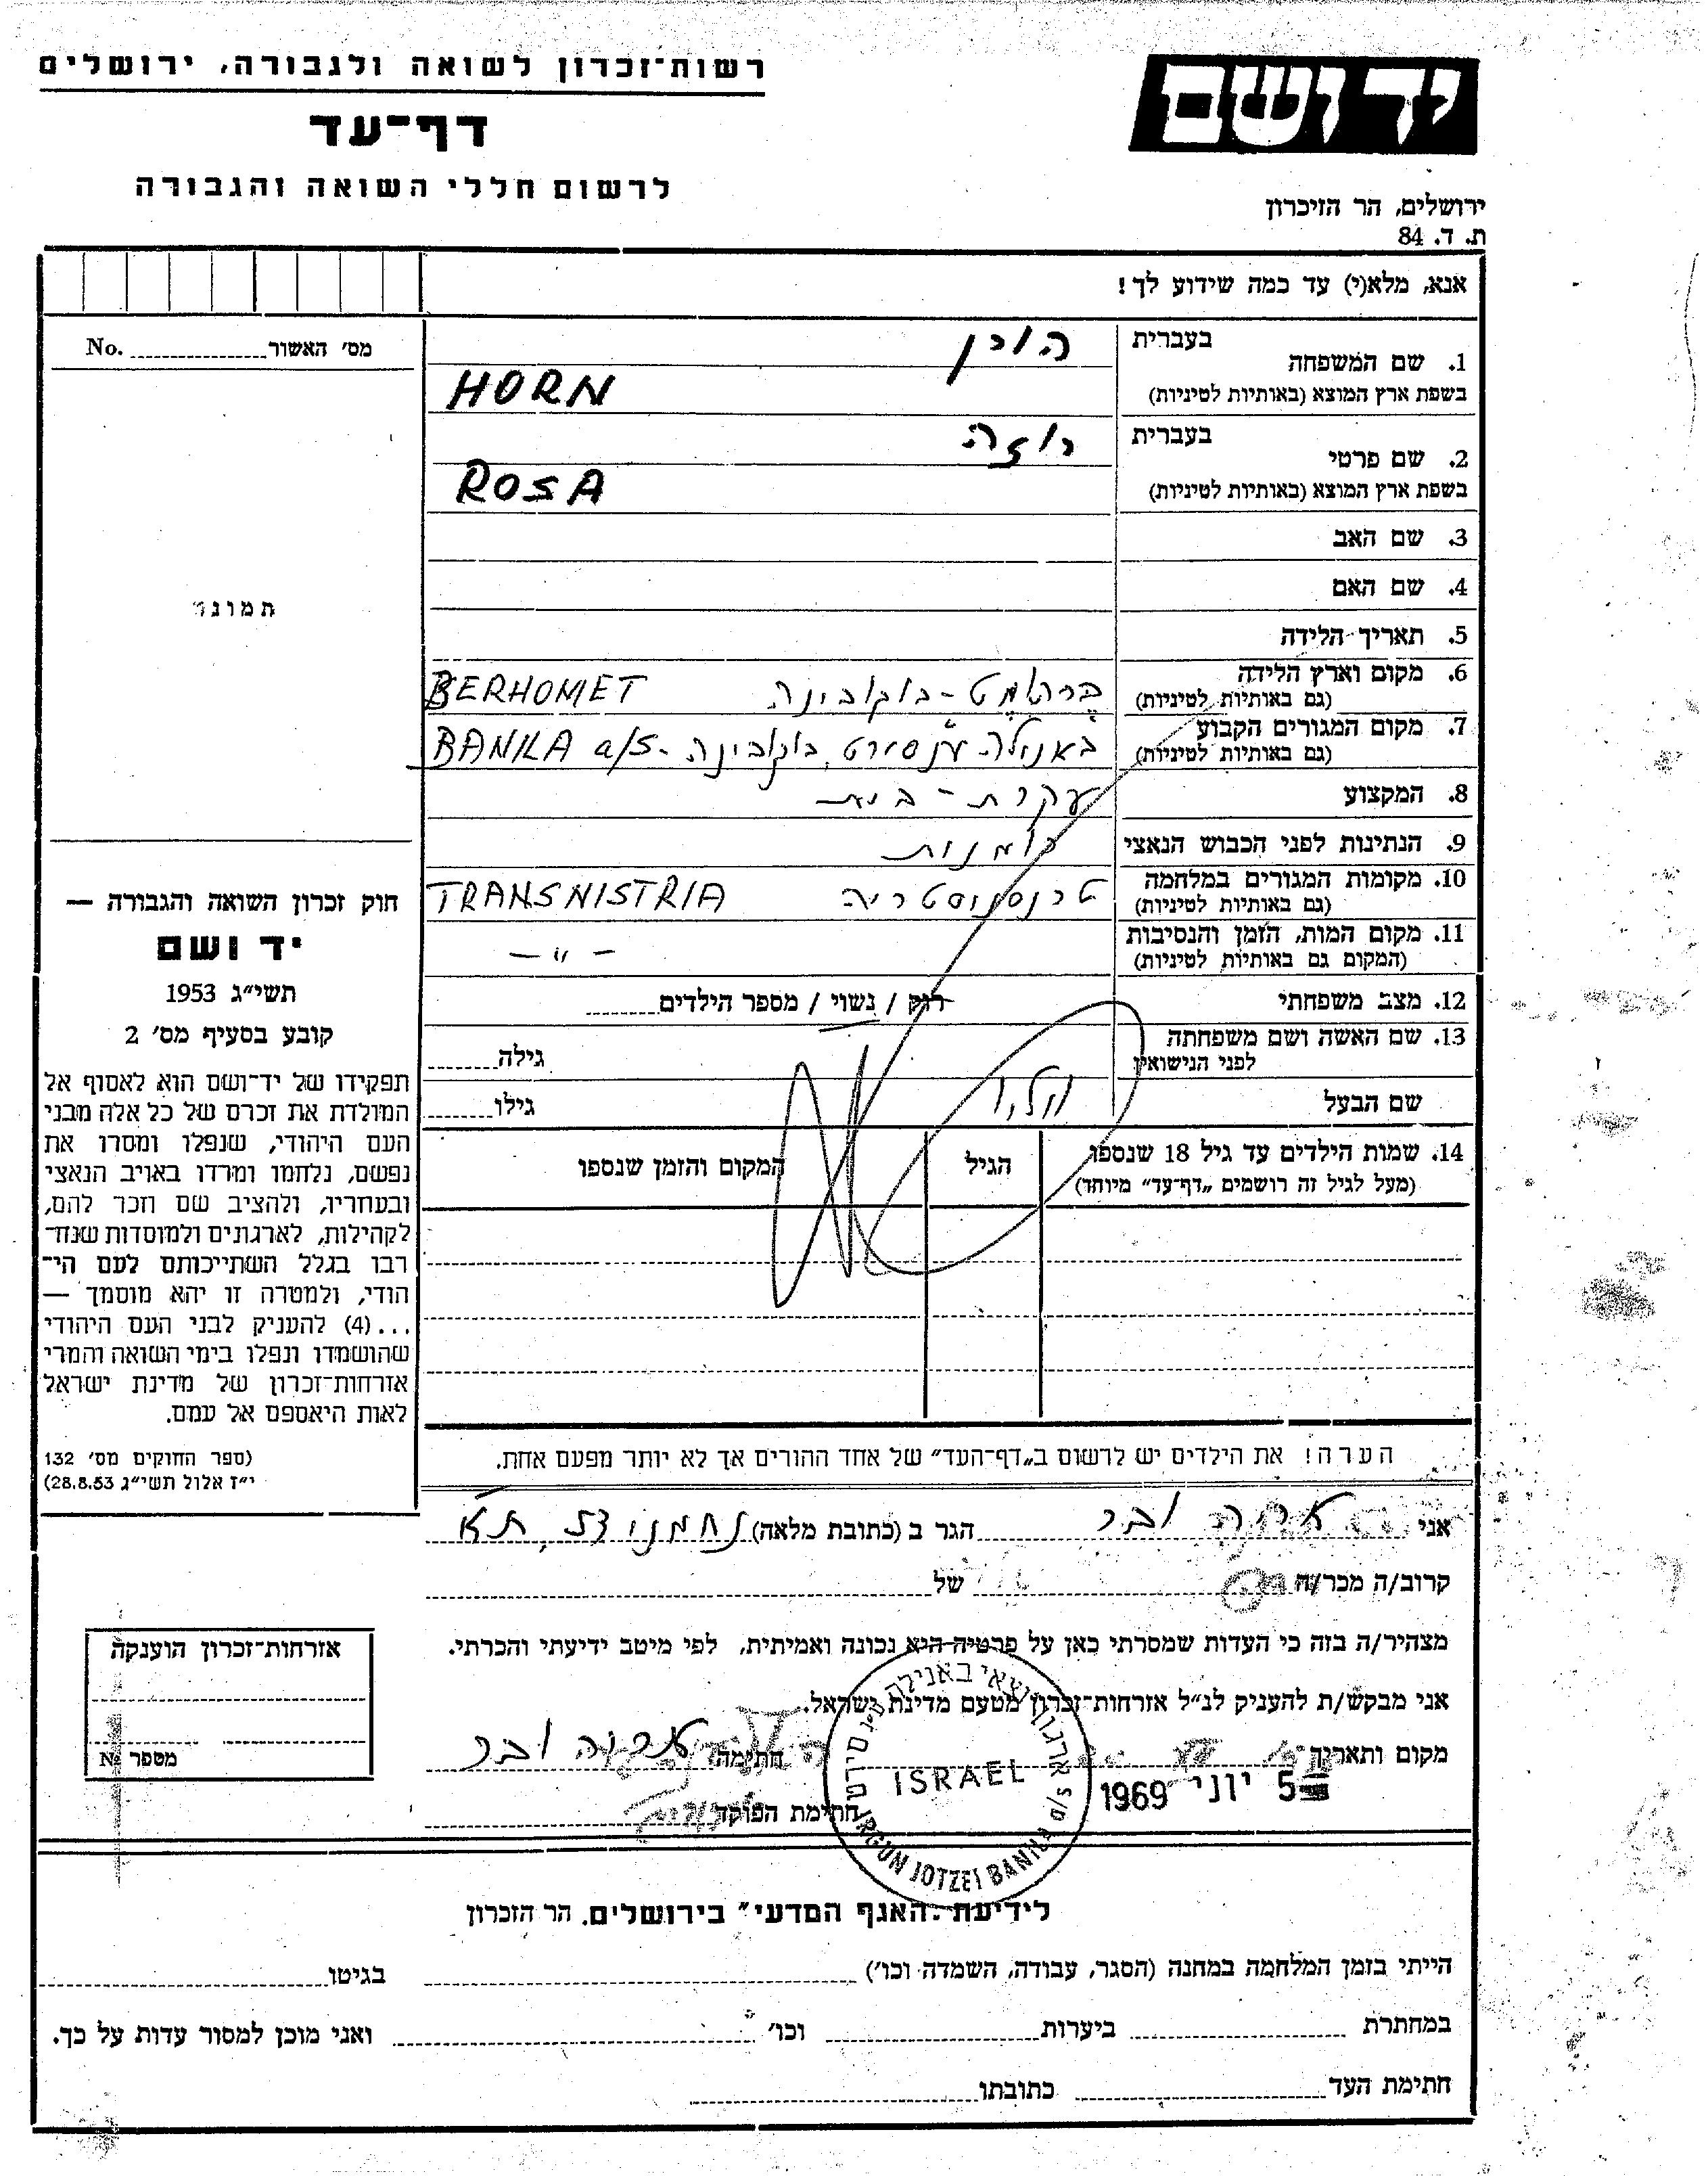 רשות־זכרון לשואה ולגבורה, ירושלים
דף־עד
לרשום חללי השואה והגבורה
יד ושם
ירושלים, הר הזיכרון
ת. ד. 84
אנא, מלא(י) עד כמה שידוע לך!
מס׳ האשור No.
תמונה
1. שם המשפחה
בעברית הורן
בשפת ארץ המוצא (באותיות לטיניות) HORN
2. שם פרטי
בעברית רוזה
בשפת ארץ המוצא (באותיות לטיניות) ROSA
3. שם האב
4. שם האם
5. תאריך הלידה
6. מקום וארץ הלידה
(גם באותיות לטיניות) ברהומט - בוקובינה BERHOMET
7. מקום המגורים הקבוע
(גם באותיות לטיניות) באנילה ע״נ סירט, בוקובינה - BANILA a/S
8. המקצוע עקרת - בית
9. הנתינות לפני הכבוש הנאצי רומנית
10. מקומות המגורים במלחמה
(גם באותיות לטיניות) טרנסניסטריה TRANSNISTRIA
11. מקום המות, הזמן והנסיבות
(המקום גם באותיות לטיניות) — ״ —
12. מצב משפחתי רווק / נשוי / מספר הילדים
13. שם האשה ושם משפחתה
לפני הנישואין גילה
שם הבעל גילו
14. שמות הילדים עד גיל 18 שנספו
(מעל לגיל זה רושמים „דף־עד״ מיוחד)
הגיל
המקום והזמן שנספו
חוק זכרון השואה והגבורה —
יד ושם
תשי״ג 1953
קובע בסעיף מס׳ 2
תפקידו של יד־ושם הוא לאסוף אל
המולדת את זכרם של כל אלה מבני
העם היהודי, שנפלו ומסרו את
נפשם, נלחמו ומרדו באויב הנאצי
ובעוזריו, ולהציב שם וזכר להם,
לקהילות, לארגונים ולמוסדות שנח־
רבו בגלל השתייכותם לעם הי־
הודי, ולמטרה זו יהא מוסמך —
...(4) להעניק לבני העם היהודי
שהושמדו ונפלו בימי השואה והמרי
אזרחות־זכרון של מדינת ישראל
לאות היאספם אל עמם.
(ספר החוקים מס׳ 132
י״ז אלול תשי״ג 28.8.53)
הערה! את הילדים יש לרשום ב„דף־העד״ של אחד ההורים אך לא יותר מפעם אחת.
אני אריה ובר הגר ב (כתובת מלאה) נחמני 52, תא
קרוב/ה מכר/ה של
מצהיר/ה בזה כי העדות שמסרתי כאן על פרטיה היא נכונה ואמיתית, לפי מיטב ידיעתי והכרתי.
אני מבקש/ת להעניק לנ״ל אזרחות־זכרון מטעם מדינת ישראל.
מקום ותאריך 5 יוני 1969 חתימה אריה ובר
חתימת הפוקד
ארגון יוצאי באנילה ע״נ סירט
ISRAEL
IRGUN JOTZEI BANILA a/S
אזרחות־זכרון הוענקה
מספר №
לידיעת „האגף המדעי״ בירושלים, הר הזכרון
הייתי בזמן המלחמה במחנה (הסגר, עבודה, השמדה וכו׳) בגיטו
במחתרת ביערות וכו׳ ואני מוכן למסור עדות על כך.
חתימת העד כתובתו